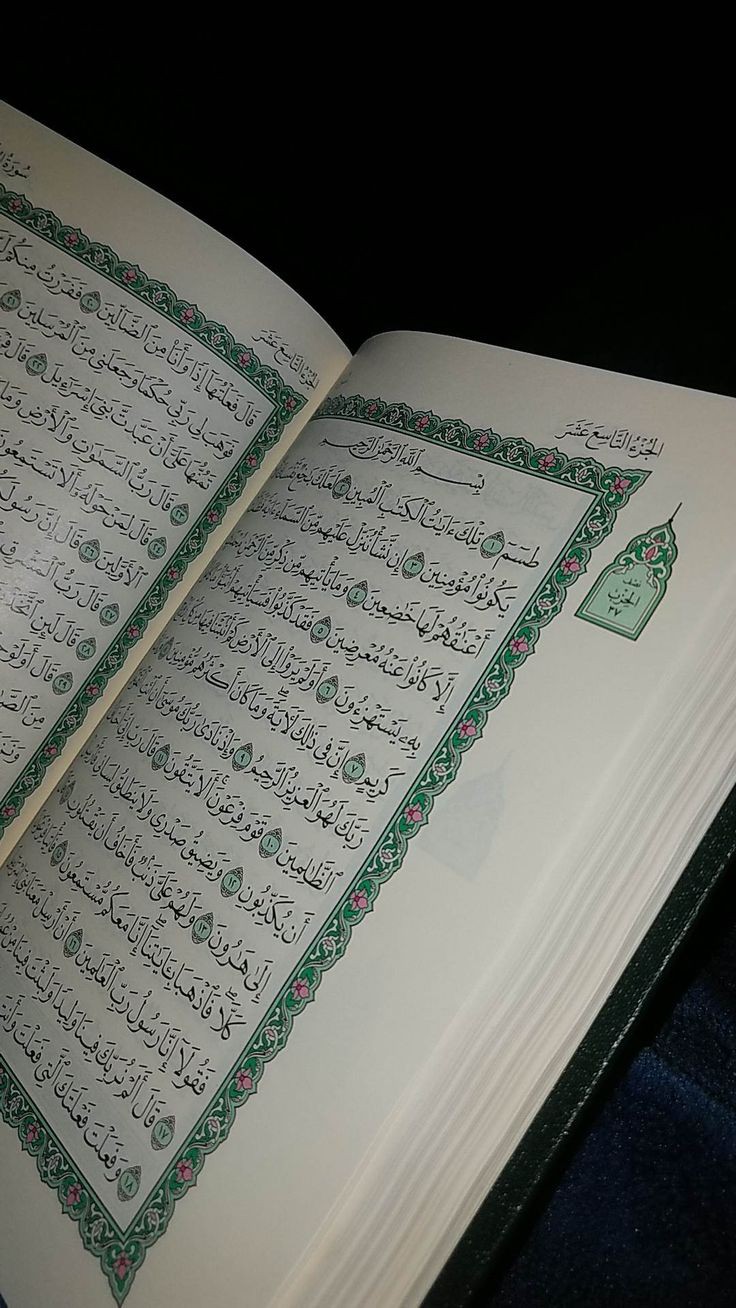 الجُزْءُ التَّاسِعَ عَشَرَ
نصف
الحزب
٣٧
بِسْمِ ٱللَّهِ ٱلرَّحْمَٰنِ ٱلرَّحِيمِ
طسٓمٓ ١ تِلْكَ ءَايَٰتُ ٱلْكِتَٰبِ ٱلْمُبِينِ ٢ لَعَلَّكَ بَٰخِعٌ نَّفْسَكَ
يَكُونُوا۟ مُؤْمِنِينَ ٣ إِن نَّشَأْ نُنَزِّلْ عَلَيْهِم مِّنَ ٱلسَّمَآءِ ءَايَةً
أَعْنَٰقُهُمْ لَهَا خَٰضِعِينَ ٤ وَمَا يَأْتِيهِم مِّن ذِكْرٍ مِّنَ ٱلرَّحْمَٰنِ
إِلَّا كَانُوا۟ عَنْهُ مُعْرِضِينَ ٥ فَقَدْ كَذَّبُوا۟ فَسَيَأْتِيهِمْ
بِهِۦ يَسْتَهْزِءُونَ ٦ أَوَلَمْ يَرَوْا۟ إِلَى ٱلْأَرْضِ كَمْ أَنۢبَتْنَا فِيهَا
كَرِيمٍ ٧ إِنَّ فِى ذَٰلِكَ لَءَايَةً ۖ وَمَا كَانَ أَكْثَرُهُم مُّؤْمِنِينَ
رَبَّكَ لَهُوَ ٱلْعَزِيزُ ٱلرَّحِيمُ ٩ وَإِذْ نَادَىٰ رَبُّكَ مُوسَىٰٓ أَنِ ٱئْتِ
ٱلظَّٰلِمِينَ ١٠ قَوْمَ فِرْعَوْنَ ۚ أَلَا يَتَّقُونَ ١١ قَالَ رَبِّ إِنِّىٓ
أَن يُكَذِّبُونِ ١٢ وَيَضِيقُ صَدْرِى وَلَا يَنطَلِقُ لِسَانِى
إِلَىٰ هَٰرُونَ ١٣ وَلَهُمْ عَلَىَّ ذَنۢبٌ فَأَخَافُ أَن يَقْتُلُونِ
كَلَّا ۖ فَٱذْهَبَا بِـَٔايَٰتِنَآ ۖ إِنَّا مَعَكُم مُّسْتَمِعُونَ ١٥ فَأْتِيَا
فَقُولَآ إِنَّا رَسُولُ رَبِّ ٱلْعَٰلَمِينَ ١٦ أَنْ أَرْسِلْ مَعَنَا بَنِىٓ
١٧ قَالَ أَلَمْ نُرَبِّكَ فِينَا وَلِيدًا وَلَبِثْتَ فِينَا مِنْ
١٨ وَفَعَلْتَ فَعْلَتَكَ ٱلَّتِى فَعَلْتَ وَأَنتَ
الجُزْءُ التَّاسِعَ عَشَرَ
سُورَةُ
قَالَ فَعَلْتُهَآ إِذًا وَأَنَا۠ مِنَ ٱلضَّآلِّينَ ٢٠ فَفَرَرْتُ مِنكُمْ
فَوَهَبَ لِى رَبِّى حُكْمًا وَجَعَلَنِى مِنَ ٱلْمُرْسَلِينَ ٢١
تَمُنُّهَا عَلَىَّ أَنْ عَبَّدتَّ بَنِىٓ إِسْرَٰٓءِيلَ ٢٢ قَالَ
٢٣ قَالَ رَبُّ ٱلسَّمَٰوَٰتِ وَٱلْأَرْضِ وَمَا
٢٤ قَالَ لِمَنْ حَوْلَهُۥٓ أَلَا تَسْتَمِعُونَ
ٱلْأَوَّلِينَ ٢٦ قَالَ إِنَّ رَسُولَكُمُ
٢٧ قَالَ رَبُّ ٱلْمَشْرِقِ
٢٨ قَالَ لَئِنِ ٱتَّخَذْتَ
٢٩ قَالَ أَوَلَوْ
مِنَ